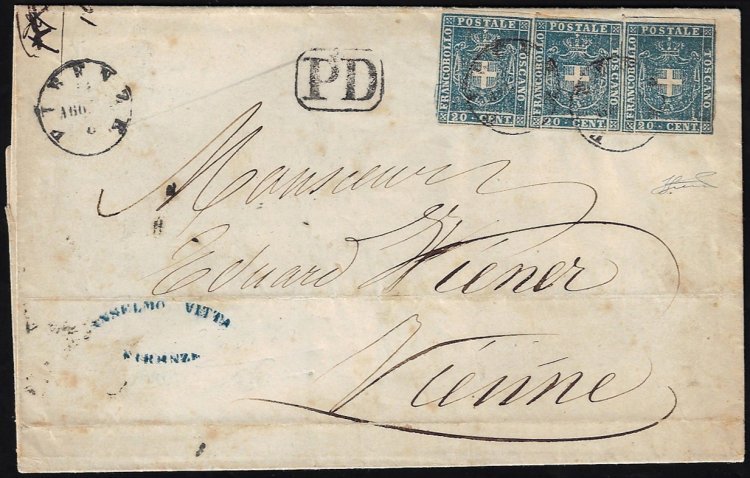 FRANCOBOLLO POSTALE TOSCANO
20 CENT.
FRANCOBOLLO POSTALE TOSCANO
20 CENT.
FRANCOBOLLO POSTALE TOSCANO
20 CENT.
FIRENZE
AGO
PD
Monsieur
Eduard Wiener
Vienne
ANSELMO VITTA
FIRENZE